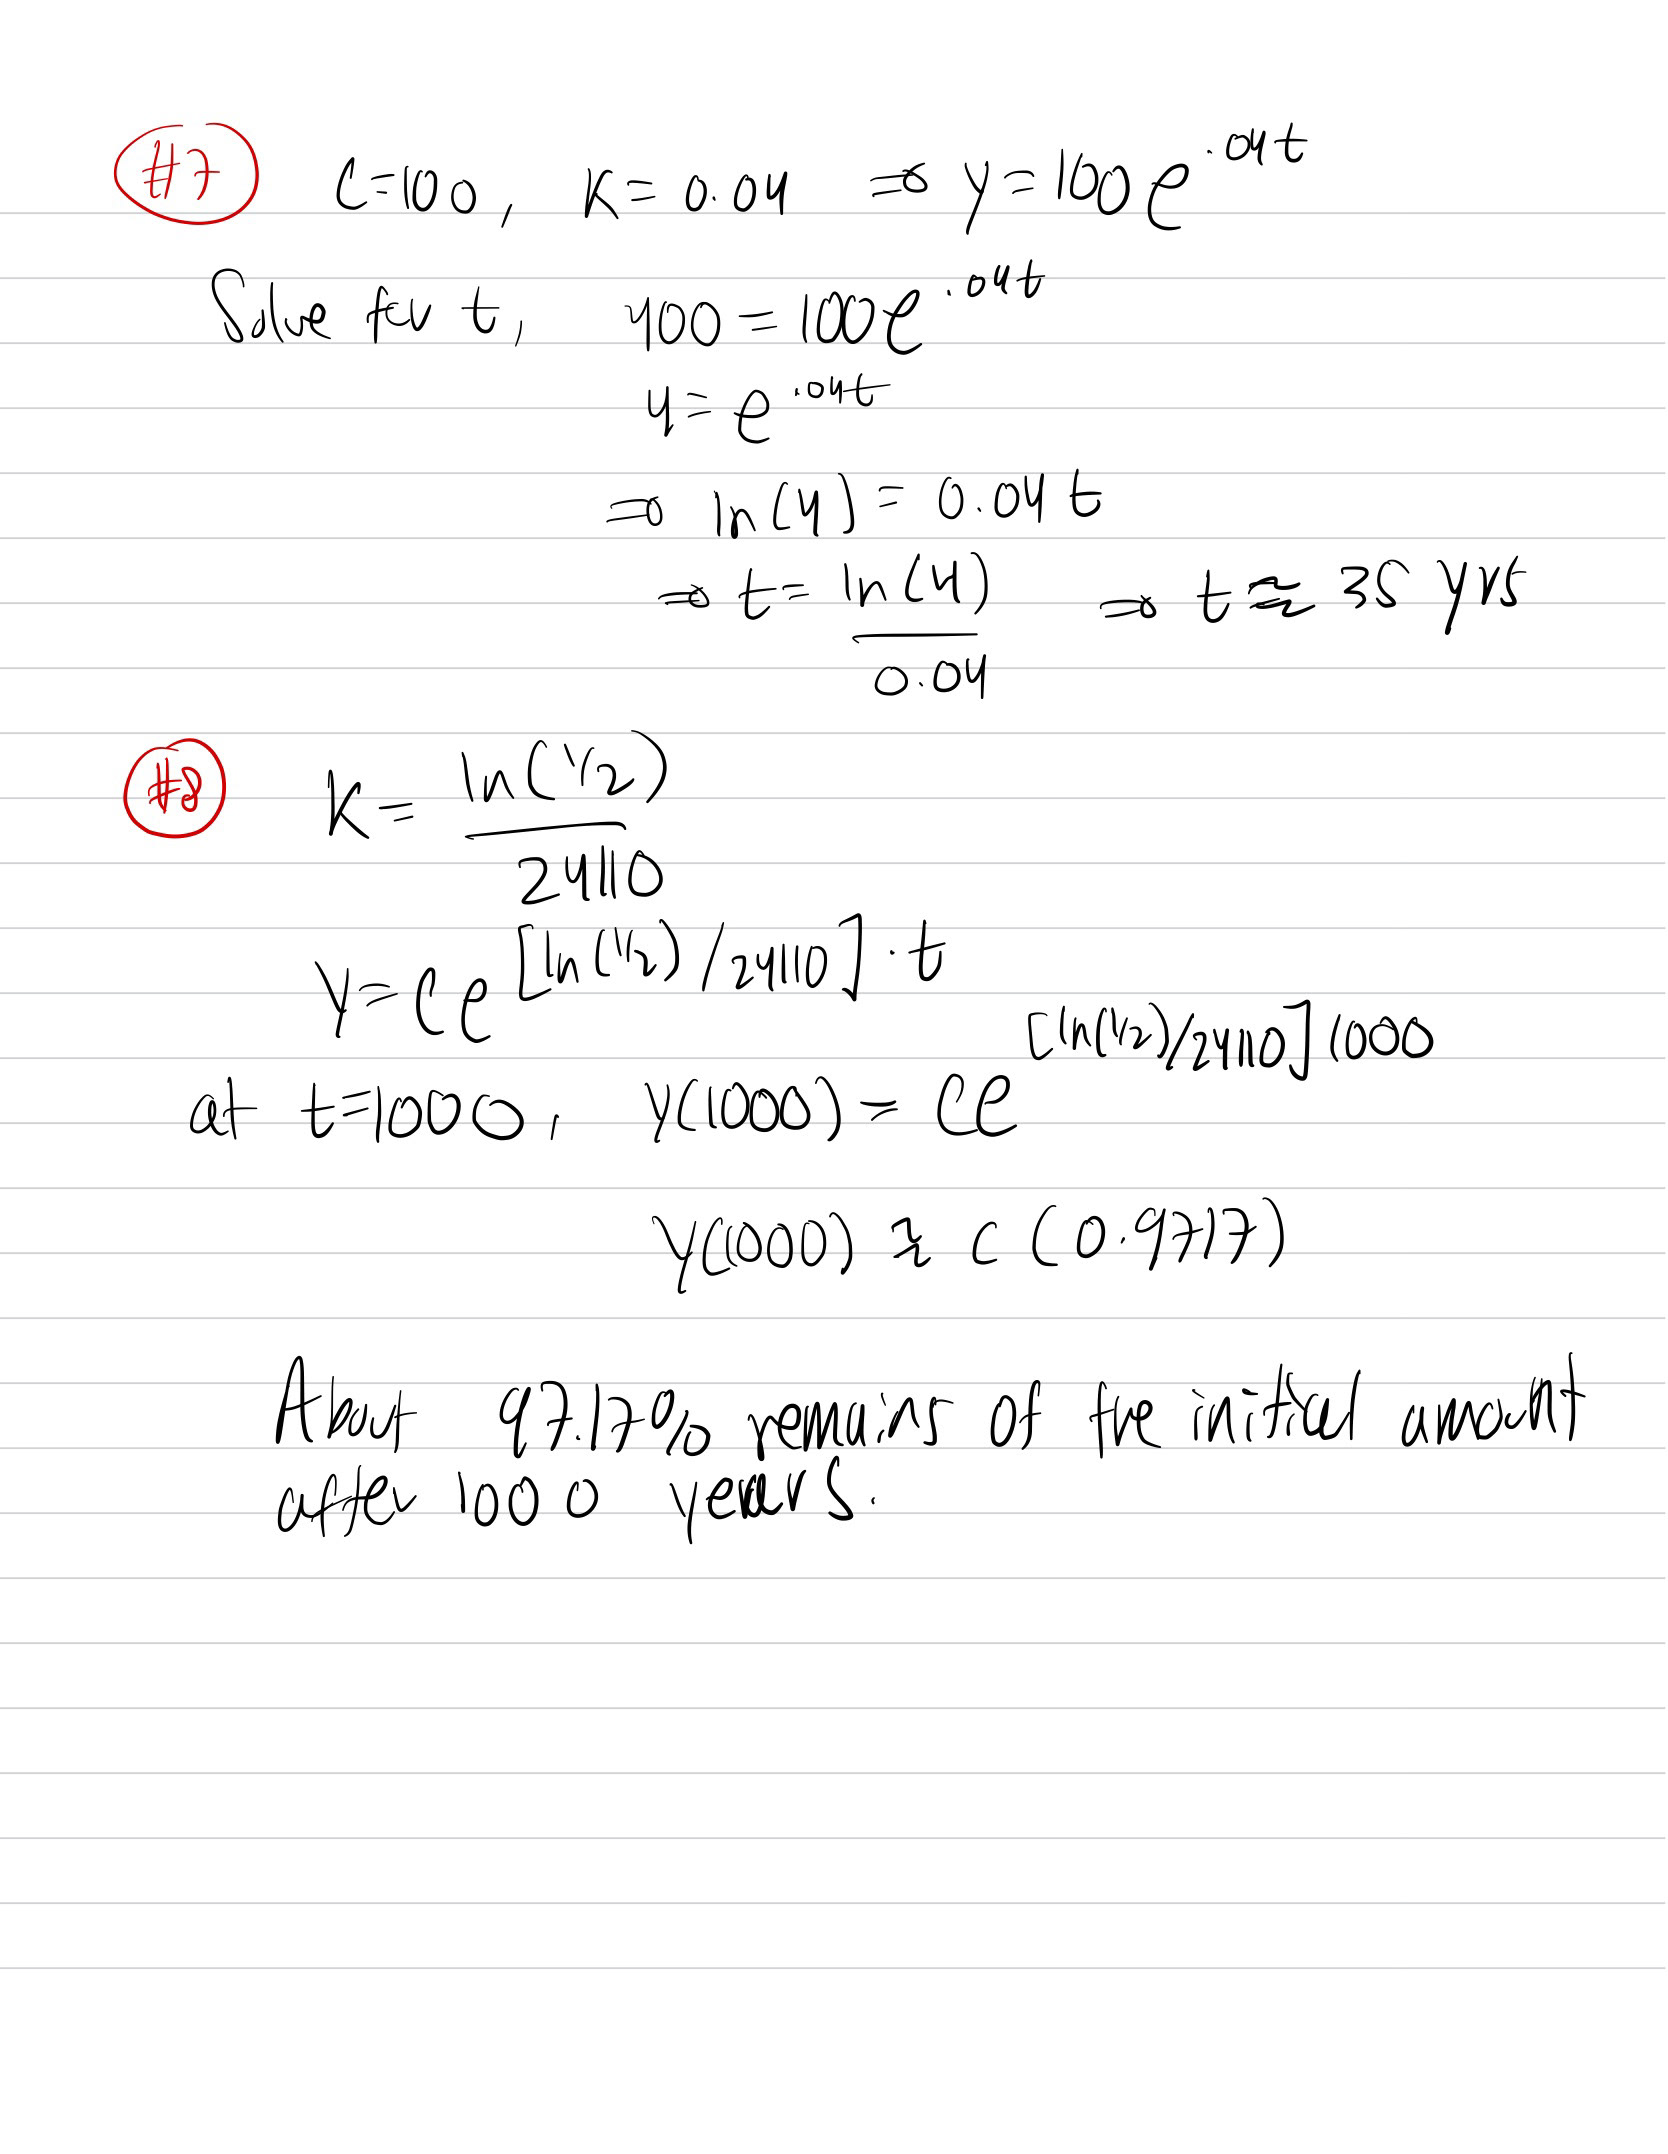 #7 C=100, K=0.04 ⇒ y=100e^.04t
Solve for t, 400=100e^.04t
4=e^.04t
⇒ ln(4)=0.04t
⇒ t=ln(4)/0.04 ⇒ t≈35 yrs
#8 K=ln(1/2)/24110
y=Ce^[ln(1/2)/24110]·t
at t=1000, y(1000)=Ce^[ln(1/2)/24110]1000
y(1000)≈C(0.9717)
About 97.17% remains of the initial amount
after 1000 years.